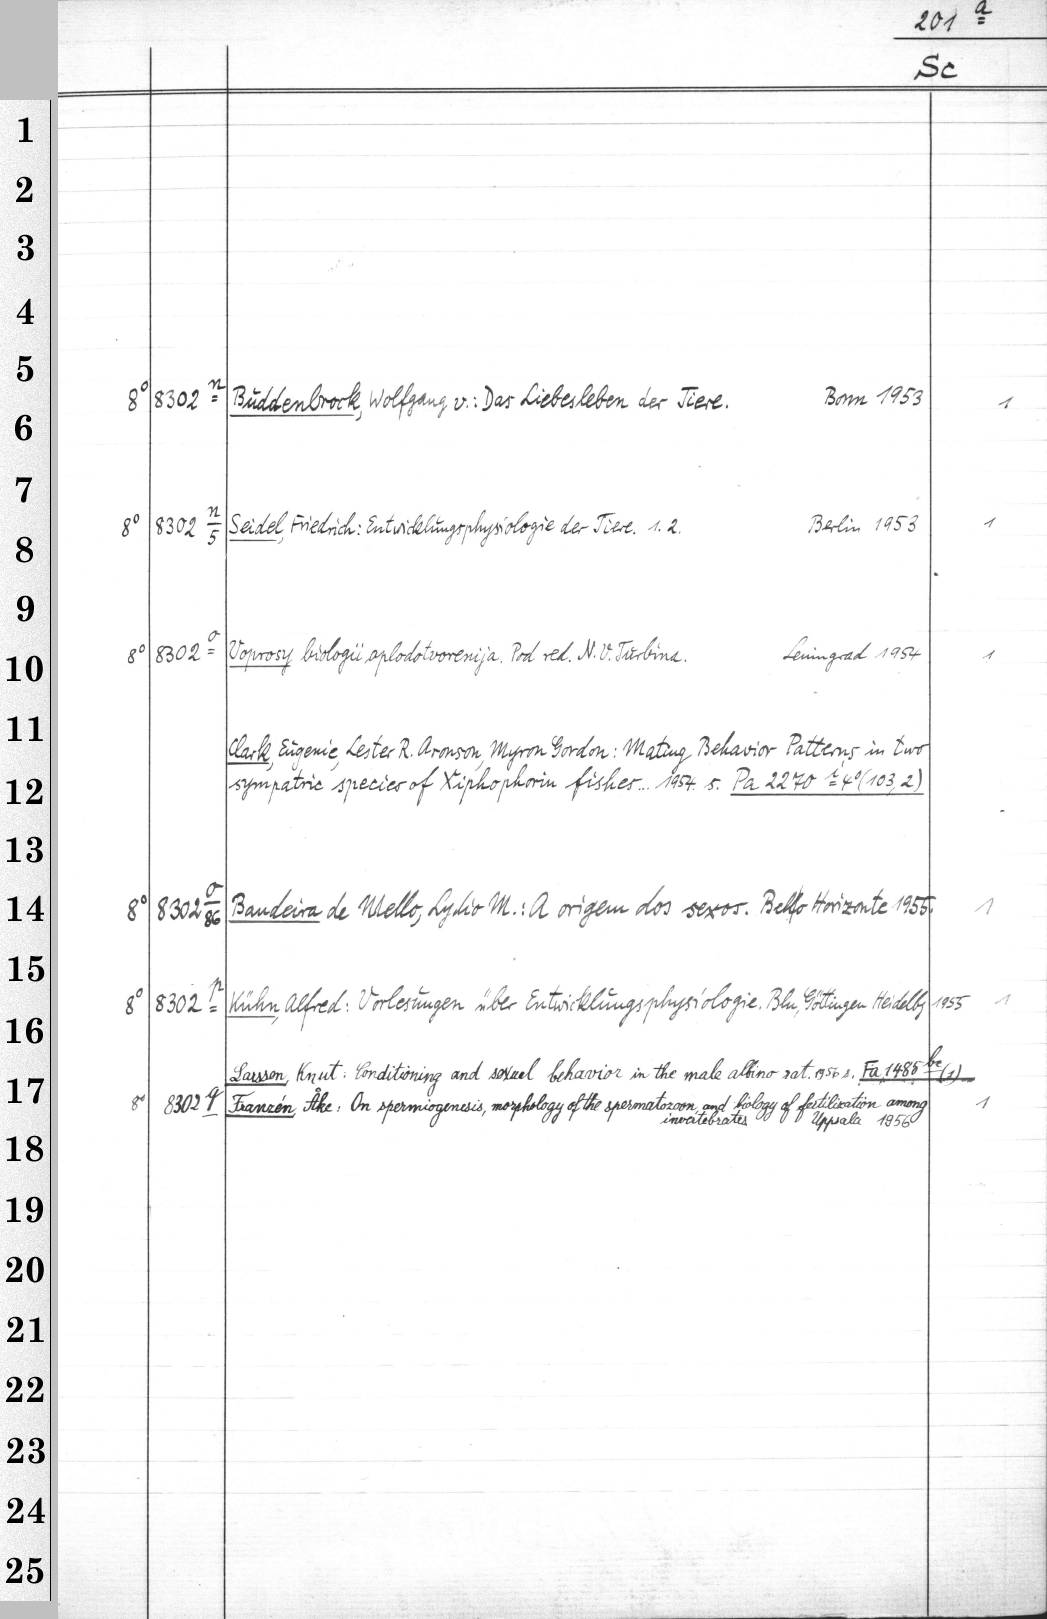 201 a
Sc
1
2
3
4
5
8° 8302 n Buddenbrock, Wolfgang v.: Das Liebesleben der Tiere. Bonn 1953 1
6
7
8° 8302 n/5 Seidel, Friedrich: Entwicklungsphysiologie der Tiere. 1. 2. Berlin 1953 1
8
9
8° 8302 o Voprosy biologii oplodotvorenija. Pod red. N. V. Turbina. Leningrad 1954 1
10
11
Clark, Eugenie, Lester R. Aronson, Myron Gordon: Mating Behavior Patterns in two
12
sympatric species of Xiphophorin fishes... 1954. s. Pa 2270 4°(103,2)
13
14
8° 8302 o/86 Bandeira de Mello, Lydio M.: A origem dos sexos. Bello Horizonte 1955. 1
15
8° 8302 p Kühn, Alfred: Vorlesungen über Entwicklungsphysiologie. Bln, Göttingen Heidelbg 1955 1
16
Larsson, Knut: Conditioning and sexual behavior in the male albino rat. 1956 s. Fa 1485 be (1)
17
8° 8302 q Franzén, Åke: On spermiogenesis, morphology of the spermatozoon, and biology of fertilization among 1
invertebrates Uppsala 1956
18
19
20
21
22
23
24
25